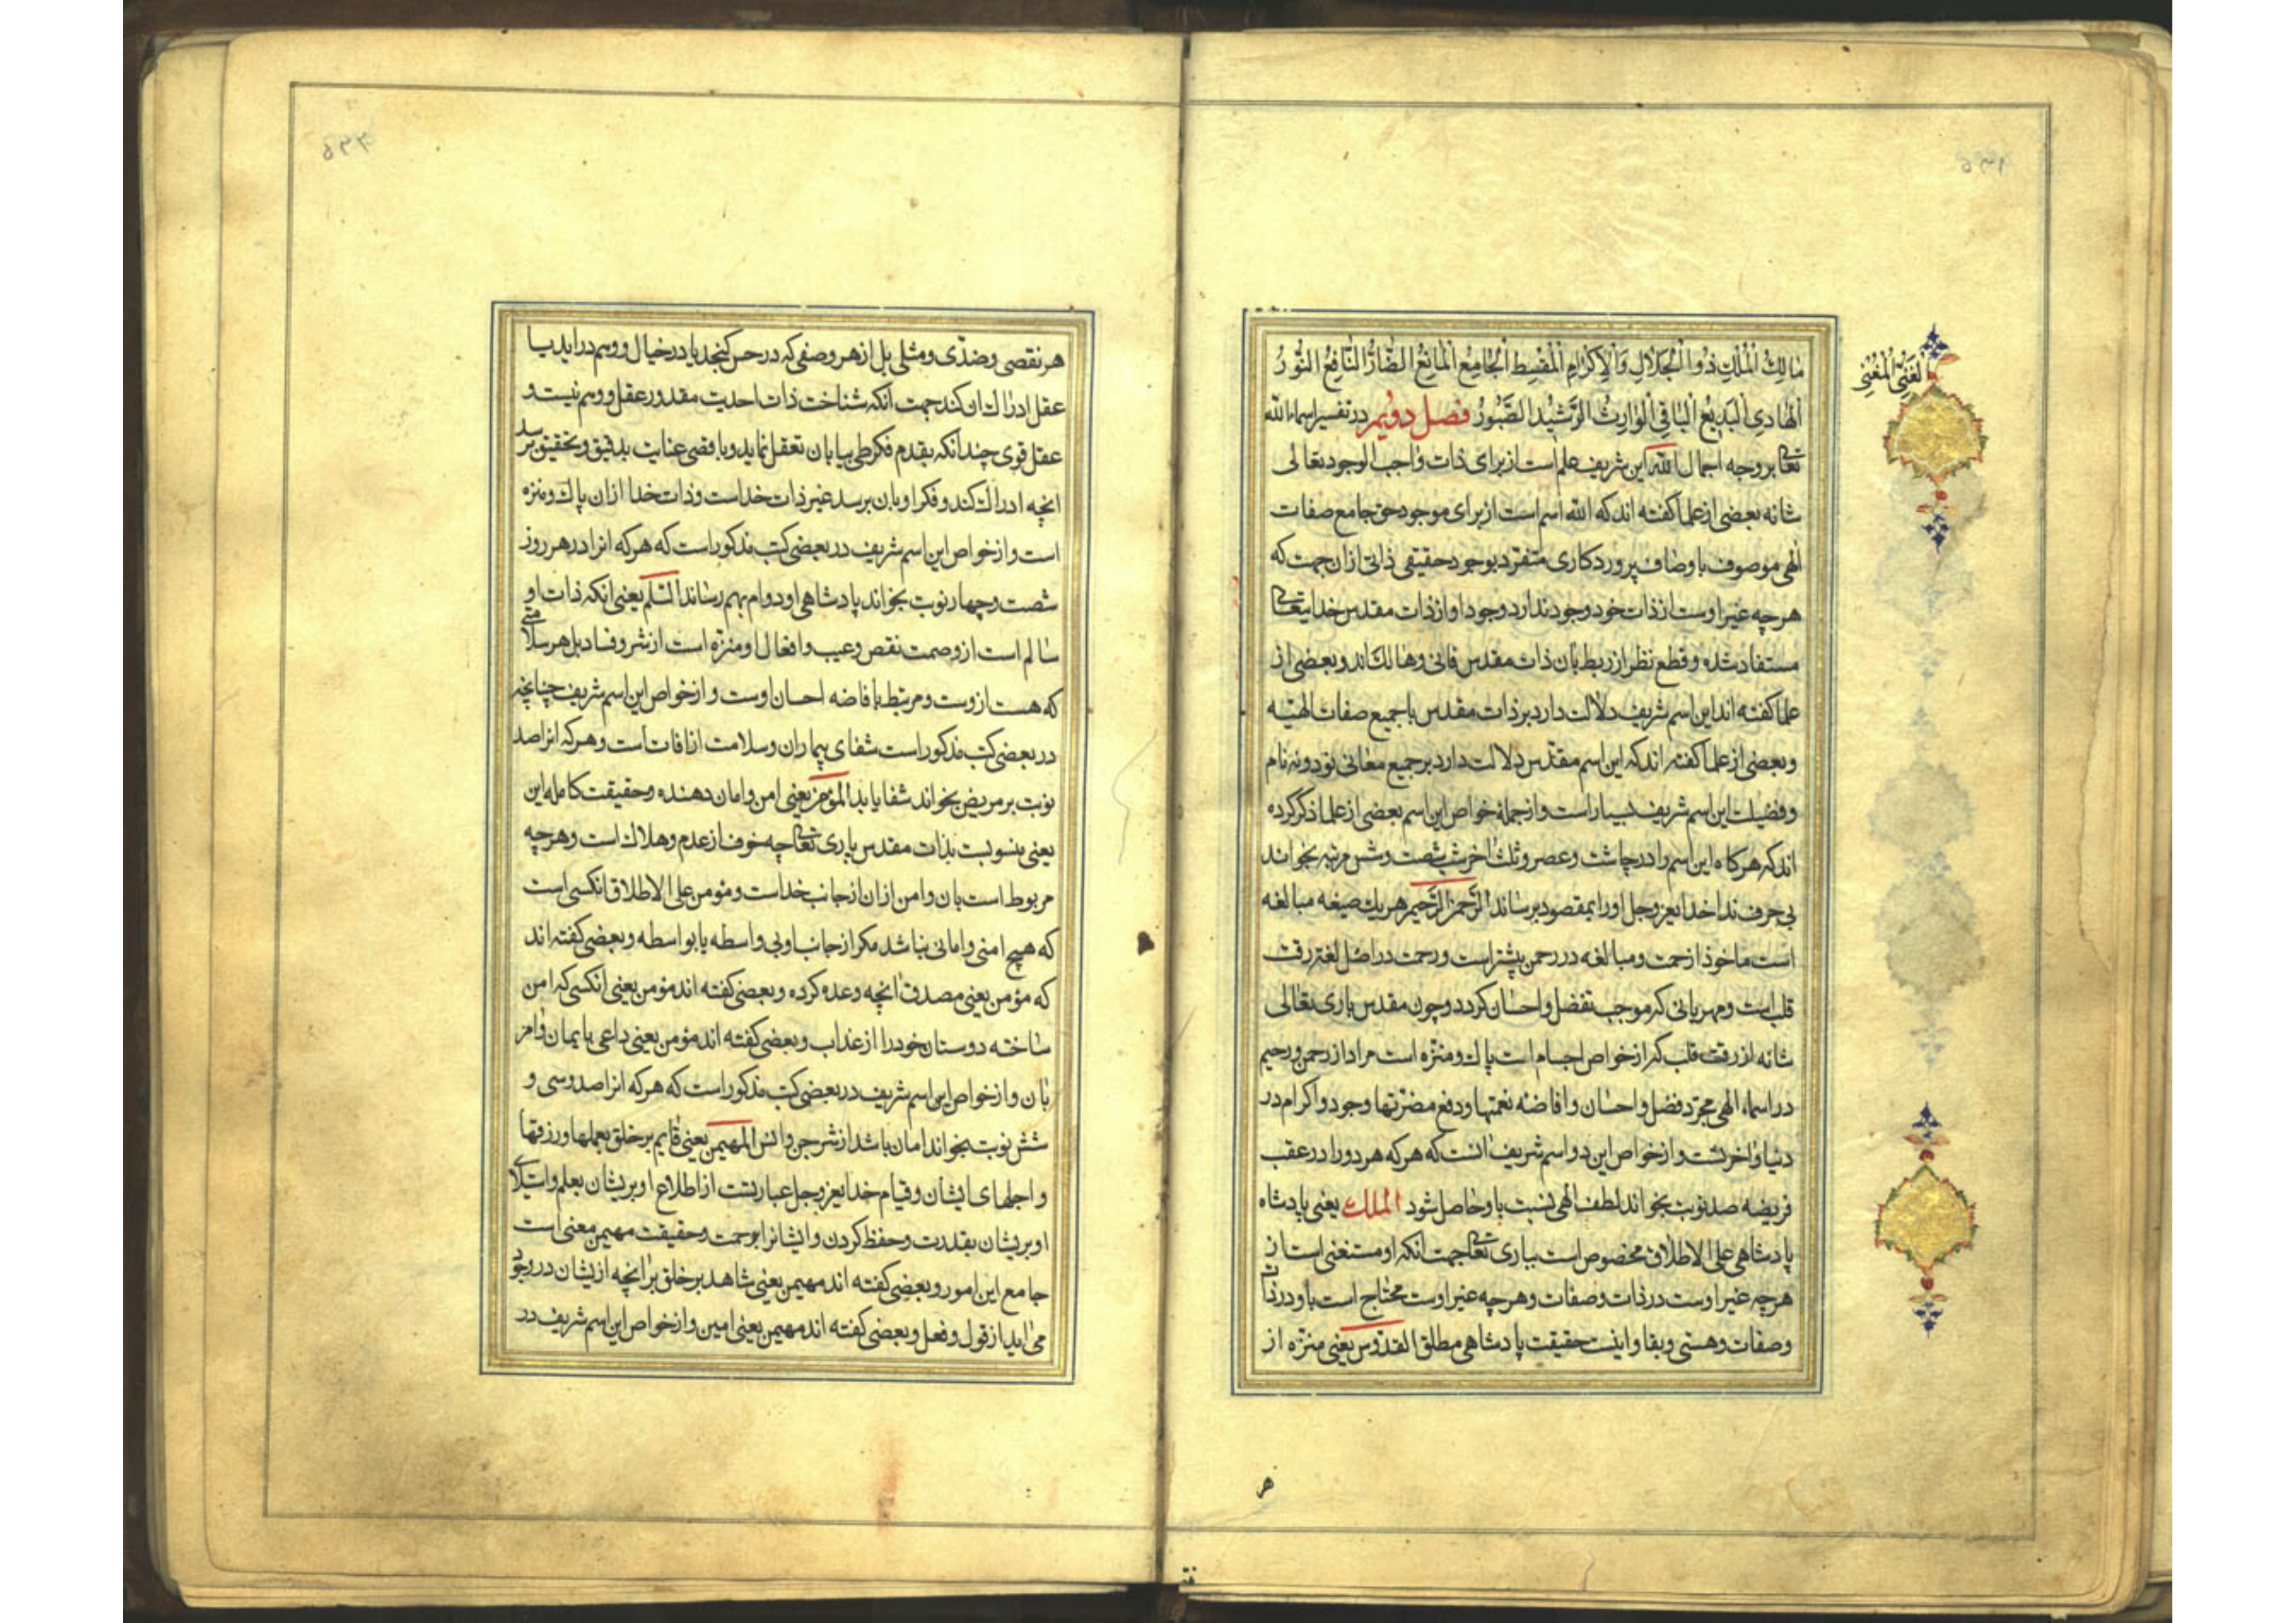 مٰالِكُ الْمُلْكِ ذُو الْجَلٰالِ وَالْاِكْرٰامِ الْمُقْسِطُ الْجٰامِعُ الْمٰانِعُ الضّٰارُّ النّٰافِعُ النُّورُ
الْغَنِیُّ الْمُغْنِی
الْهٰادِی الْبَدِیعُ الْبٰاقِی الْوٰارِثُ الرَّشِیدُ الصَّبُورُ فصل دویم در تفسیر اسماء الله
تعالی بر وجه اجمال الله این شریف علم است از برای ذات واجب الوجود تعالی
شانه بعضی از علما کفته اند که الله اسم است از برای موجود حق جامع صفات
الهی موصوف باوصاف پروردکاری متفرد بوجود حقیقی ذاتی از ان جهت که
هرچه غیر اوست از ذات خود وجود ندارد وجود او از ذات مقدس خدایتعالی
مستفاد شده و قطع نظر از ربط بان ذات مقدس فانی و هالک اند و بعضی از
علما کفته اند این اسم شریف دلالت دارد بر ذات مقدس با جمیع صفات الهیّه
و بعضی از علما کفته اند که این اسم مقدّس دلالت دارد بر جمیع معانی نود و نه نام
و فضیلت این اسم شریف بسیار است و از جمله خواص این اسم بعضی از علما ذکر کرده
اند که هرکاه این اسم را در چاشت و عصر و ثلث اخر شب شصت و شش مرتبه بخواند
بی حرف ندا خدایعزوجل او را بمقصود برساند الرَّحمن الرَّحیم هر یک صیغه مبالغه
است ماخوذ از رحمت و مبالغه در رحمن بیشتر است و رحمت در اصل لغت رقت
قلب است و مهربانی که موجب تفضل و احسان کردد و چون مقدس باری تعالی
شانه از رقت قلب که از خواص اجسام است پاک و منزّه است مراد از رحمن و رحیم
در اسماء الهی مجرّد فضل و احسان و افاضه نعمتها و دفع مضرّتها و جود و اکرام در
دنیا و اخرتست و از خواص این دو اسم شریف انست که هرکه هر دو را در عقب
فریضه صد نوبت بخواند لطف الهی نسبت باو حاصل شود الملک یعنی پادشاه
پادشاهی علی الاطلاق مخصوص است بباری تعالی جهت انکه او مستغنی است از
هرچه غیر اوست در ذات و صفات و هرچه غیر اوست محتاج است باو در ذات
و صفات و هستی و بقا و اینست حقیقت پادشاهی مطلق القدّوس یعنی منزّه از
هر
هر نقصی و ضدّی و مثلی بل از هر وصفی که در حس کنجد یا در خیال و وهم در اید یا
عقل ادراک ان کند جهت انکه شناخت ذات احدیت مقدور عقل و وهم نیست و
عقل قوی چندانکه بقدم فکر طی بیابان تعقل نماید و باقصی عنایت بدقیق و تحقیق برسد
انچه ادراک کند و فکر او بان برسد غیر ذات خداست و ذات خدا از ان پاک و منزه
است و از خواص این اسم شریف در بعضی کتب مذکور است که هرکه انرا در هر روز
شصت و چهار نوبت بخواند پادشاهی او دوام بهم رساند السّلم یعنی انکه ذات او
سالم است از وصمت نقص و عیب و افعال او منزه است از شر و فساد بل هر سلامتی
که هست از وست و مرتبط بافاضه احسان اوست و از خواص این اسم شریف چنانچه
در بعضی کتب مذکور است شفای بیماران و سلامت از افات است و هرکه انرا صد
نوبت بر مریض بخواند شفا یابد المؤمن یعنی امن و امان دهنده و حقیقت کامله این
یعنی منسوبست بذات مقدس باری تعالی چه خوف از عدم و هلاک است و هرچه
مربوط است بان و امن از ان از جانب خداست و مؤمن علی الاطلاق انکسی است
که هیچ امنی و امانی نباشد مکر از جانب او بی واسطه یا بواسطه و بعضی کفته اند
که مؤمن یعنی مصدق انچه وعده کرده و بعضی کفته اند مؤمن یعنی انکسی که امن
ساخته دوستان خود را از عذاب و بعضی کفته اند مؤمن یعنی داعی بایمان و امر
بان و از خواص این اسم شریف در بعضی کتب مذکور است که هرکه انرا صد و سی و
شش نوبت بخواند امان باشد از شر جن و انس المهیمن یعنی قایم بر خلق بعملها و رزقها
و اجلهای ایشان و قیام خدایعزوجل عبارتست از اطلاع او بریشان بعلم و استیلای
او بریشان بقدرت و حفظ کردن و ایشانرا برحمت و حقیقت مهیمن معنی است
جامع این امور و بعضی کفته اند مهیمن یعنی شاهد بر خلق بر انچه ازیشان در وجود
می اید از قول و فعل و بعضی کفته اند مهیمن یعنی امین و از خواص این اسم شریف در